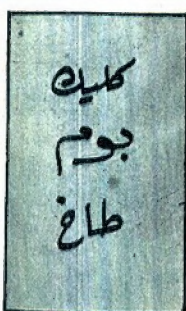 كليك
بوم
طاخ